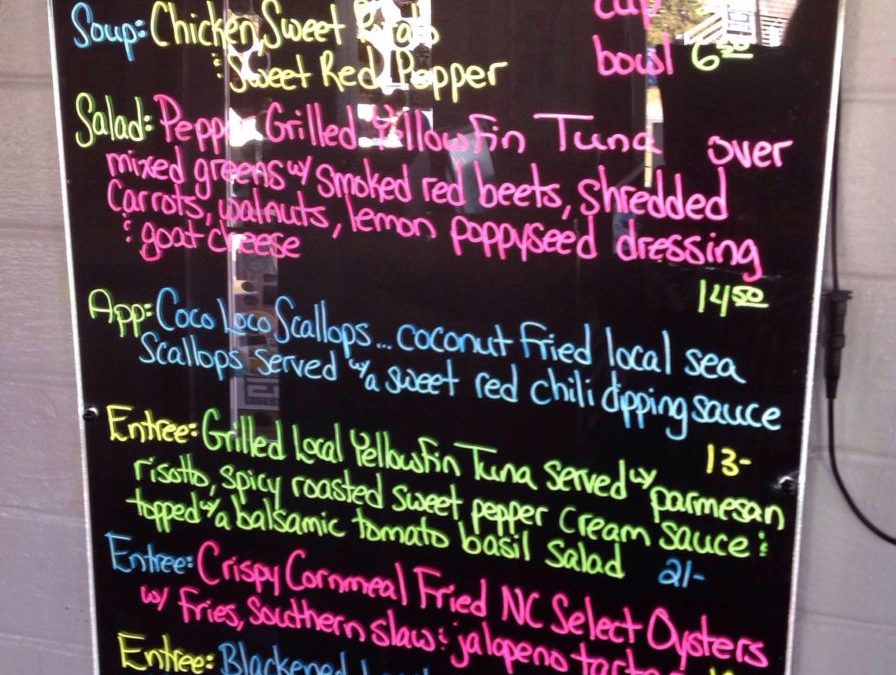 Soup: Chicken, Sweet Potato cup
& Sweet Red Pepper bowl 650
Salad: Pepper Grilled Yellowfin Tuna over
mixed greens w/ smoked red beets, shredded
Carrots, walnuts, lemon poppyseed dressing
& goat cheese
14 50
App: Coco Loco Scallops... coconut fried local sea
Scallops served w/ a sweet red chili dipping sauce
13-
Entree: Grilled Local Yellowfin Tuna served w/ parmesan
risotto, spicy roasted sweet pepper cream sauce &
topped w/ a balsamic tomato basil salad 21-
Entree: Crispy Cornmeal Fried NC Select Oysters
w/ fries, Southern slaw & jalapeno
Entree: Blackened